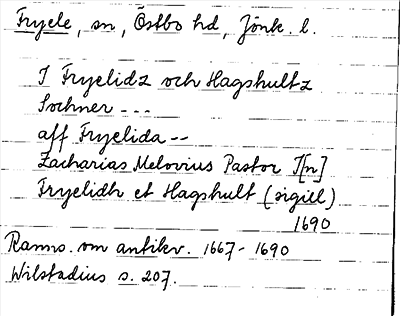 Fryele, sn, Östbo hd, Jönk. l.
I Fryelidz och Hagshultz
Sochner - - -
aff Fryelida - -
Zacharias Melovius Pastor I[n]
Fryelidh et Hagshult (sigill)
1690
Ranns. om antikv. 1667 - 1690
Wilstadius s. 207.